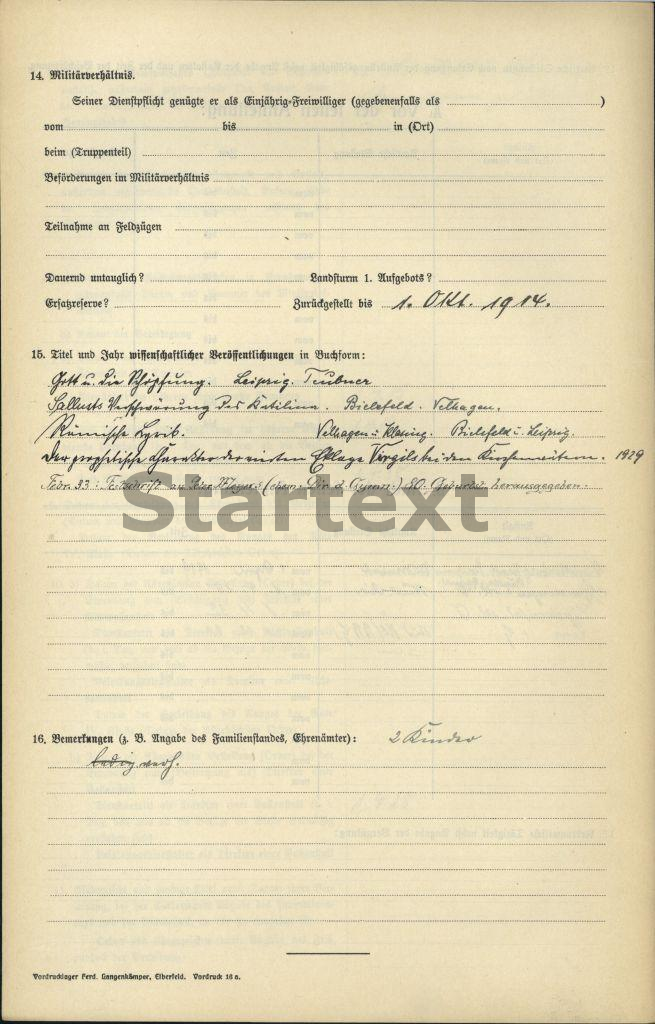 14. Militärverhältnis.
Seiner Dienstpflicht genügte er als Einjährig-Freiwilliger (gegebenenfalls als )
vom bis in (Ort)
beim (Truppenteil)
Beförderungen im Militärverhältnis
Teilnahme an Feldzügen
Dauernd untauglich? Landsturm 1. Aufgebots?
Ersatzreserve? Zurückgestellt bis 1. Okt. 1914.
15. Titel und Jahr wissenschaftlicher Veröffentlichungen in Buchform:
Gott u. die Schöpfung. Leipzig. Teubner
Sallusts Verschwörung des Katilina. Bielefeld. Velhagen.
Römische Lyrik. Velhagen u. Klasing. Bielefeld u. Leipzig.
Der prophetische Charakter der vierten Ekloge Vergils bei den Kirchenvätern. 1929
Febr. 33: Festschrift zu Dir. Meyers (ehem. Dir. d. Gymn.) 80. Geburtst. herausgegeben.
Startext
16. Bemerkungen (z. B. Angabe des Familienstandes, Ehrenämter): 2 Kinder
ledig verh.
Vordrucklager Ferd. Langenkämper, Elberfeld. Vordruck 16 a.